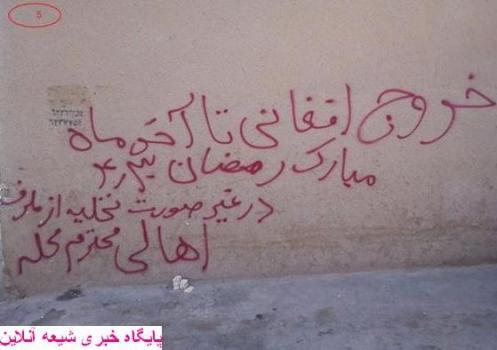 5
خروج افغانی تا آخر ماه
مبارک رمضان
در غیر صورت تخلیه از طرف
اهالی محترم محله
پایگاه خبری شیعه آنلاین